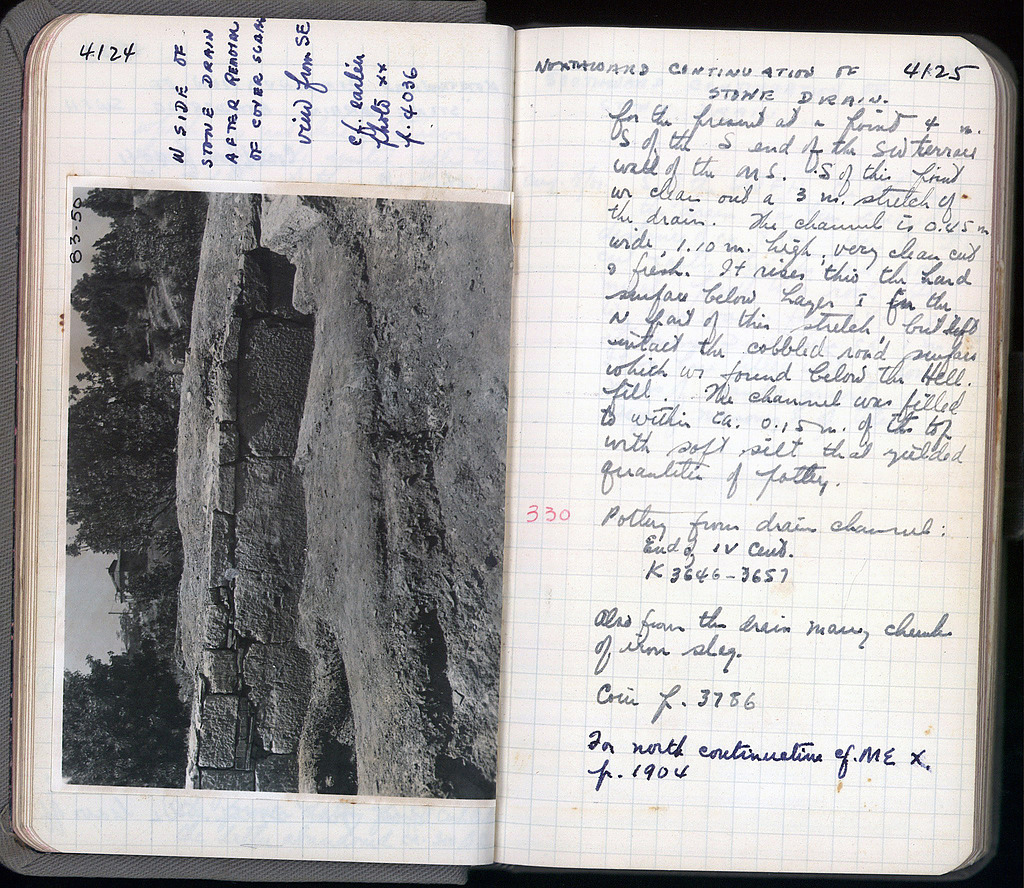 4124
N SIDE OF
STONE DRAIN
AFTER REMOVAL
OF COVER SLABS
view from SE
cf. earlier
photo xx
p. 4036
83-50
4125
NORTHWARD CONTINUATION OF
STONE DRAIN.
for the present at a point 4 m.
S of the S end of the SW terrace
wall of the MS. S of this point
we clean out a 3 m. stretch of
the drain. The channel is 0.45 m
wide, 1.10 m. high, very clean cut
& fresh. It rises thru the hard
surface below Layer I for the
N part of this stretch but left
intact the cobbled road surface
which we found below the Hell.
fill. The channel was filled
to within ca. 0.15 m. of the top
with soft silt that yielded
quantities of pottery.
330
Pottery from drain channel:
End of IV Cent.
K 3646-3657
Also from the drain many chunks
of iron slag.
Coin p. 3786
For north continuation cf. ME X.
p. 1904